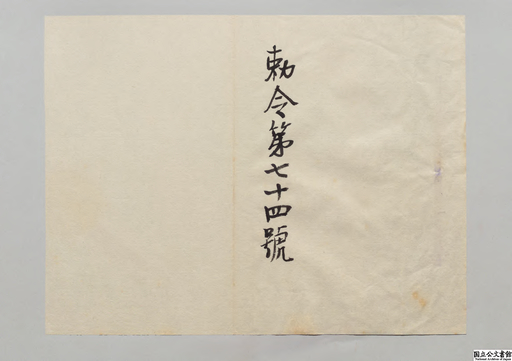 勅令第七十四號
国立公文書館
National Archives of Japan